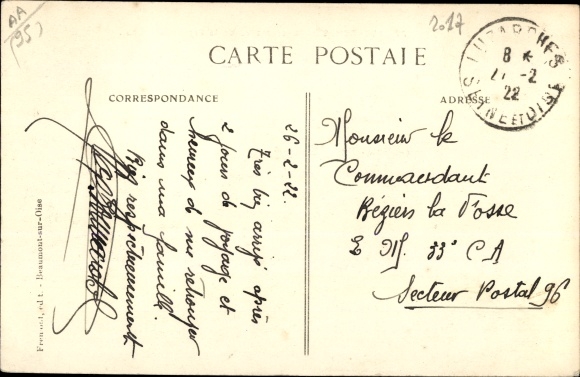 AA
(95)
2017
CARTE POSTALE
CORRESPONDANCE
ADRESSE
LUZARCHES
8 *
27 -2
22
SEINE ET OISE
26-2-22
Très bien arrivé après
2 jours de voyage et
heureux de me retrouver
dans ma famille.
Bien respectueusement
Monsieur le
Commandant
Béziers la Fosse
E M. 33e C A
Secteur Postal 96
Frémont, édit. - Beaumont-sur-Oise